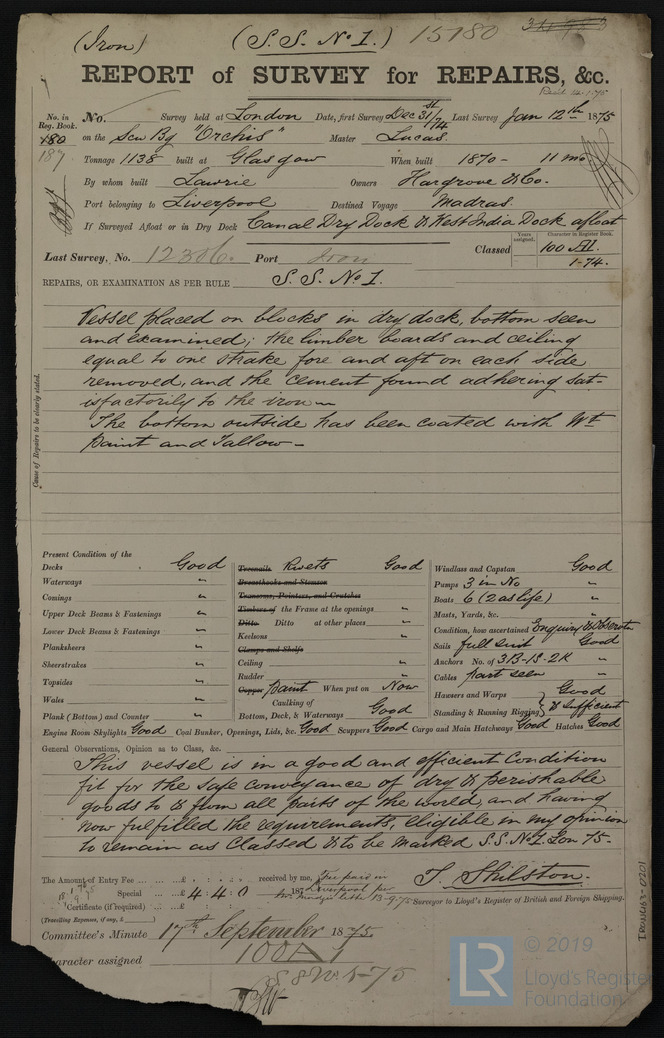 (Iron) (S.S. No 1.) 15180
REPORT of SURVEY for REPAIRS, &c.
No. in Reg. Book. No. Survey held at London Date, first Survey Dec 31st/74 Last Survey Jan 12th 1875
180 on the Scw Bg "Orchis" Master Lucas
187 Tonnage 1138 built at Glasgow When built 1870 - 11 mo
By whom built Lawrie Owners Hargrove & Co.
Port belonging to Liverpool Destined Voyage Madras.
If Surveyed Afloat or in Dry Dock Canal Dry Dock & West India Dock afloat
Years assigned. Character in Register Book.
Last Survey, No. 12306. Port Classed 100 A1.
1-74.
REPAIRS, OR EXAMINATION AS PER RULE S.S. No 1.
Cause of Repairs to be clearly stated.
Vessel placed on blocks in dry dock, bottom seen
and examined; the limber boards and ceiling
equal to one strake fore and aft on each side
removed, and the cement found adhering sat-
isfactorily to the iron —
The bottom outside has been coated with Wt
paint and Tallow —
Present Condition of the
Decks Good
Waterways "
Comings "
Upper Deck Beams & Fastenings "
Lower Deck Beams & Fastenings "
Planksheers "
Sheerstrakes "
Topsides "
Wales "
Plank (Bottom) and Counter "
Treenails Rivets Good
Breasthooks and Stemson
Transoms, Pointers, and Crutches
Timbers of the Frame at the openings "
Ditto Ditto at other places "
Keelsons "
Clamps and Shelfs
Ceiling "
Rudder "
Copper Paint When put on Now
Caulking of
Bottom, Deck, & Waterways Good
Windlass and Capstan Good
Pumps 3 in No "
Boats 6 (2 as life) "
Masts, Yards, &c. "
Condition, how ascertained Enquiry & Observatn
Sails full suit Good
Anchors No. of 3B-1S-2K "
Cables part seen "
Hawsers and Warps Good
Standing & Running Rigging & Sufficient
Engine Room Skylights Good Coal Bunker, Openings, Lids, &c. Good Scuppers Good Cargo and Main Hatchways Good Hatches Good
General Observations, Opinion as to Class, &c.
This vessel is in a good and efficient condition
fit for the safe conveyance of dry & perishable
goods to & from all parts of the world, and having
now fulfilled the requirements, eligible in my opinion
to remain as Classed & to be marked S.S. No 1 Lon 75.
The Amount of Entry Fee ... £ : : received by me, Fee paid in
Special ... £ 4 : 4 : 0 187 Liverpool per
letter 13-9-75
Certificate (if required) ... £ : :
(Travelling Expenses, if any, £ )
T. Shilston.
Surveyor to Lloyd's Register of British and Foreign Shipping.
Committee's Minute 17th September 1875
Character assigned 100A1
1-75
IRON463-0201
LR © 2019
Lloyd's Register
Foundation